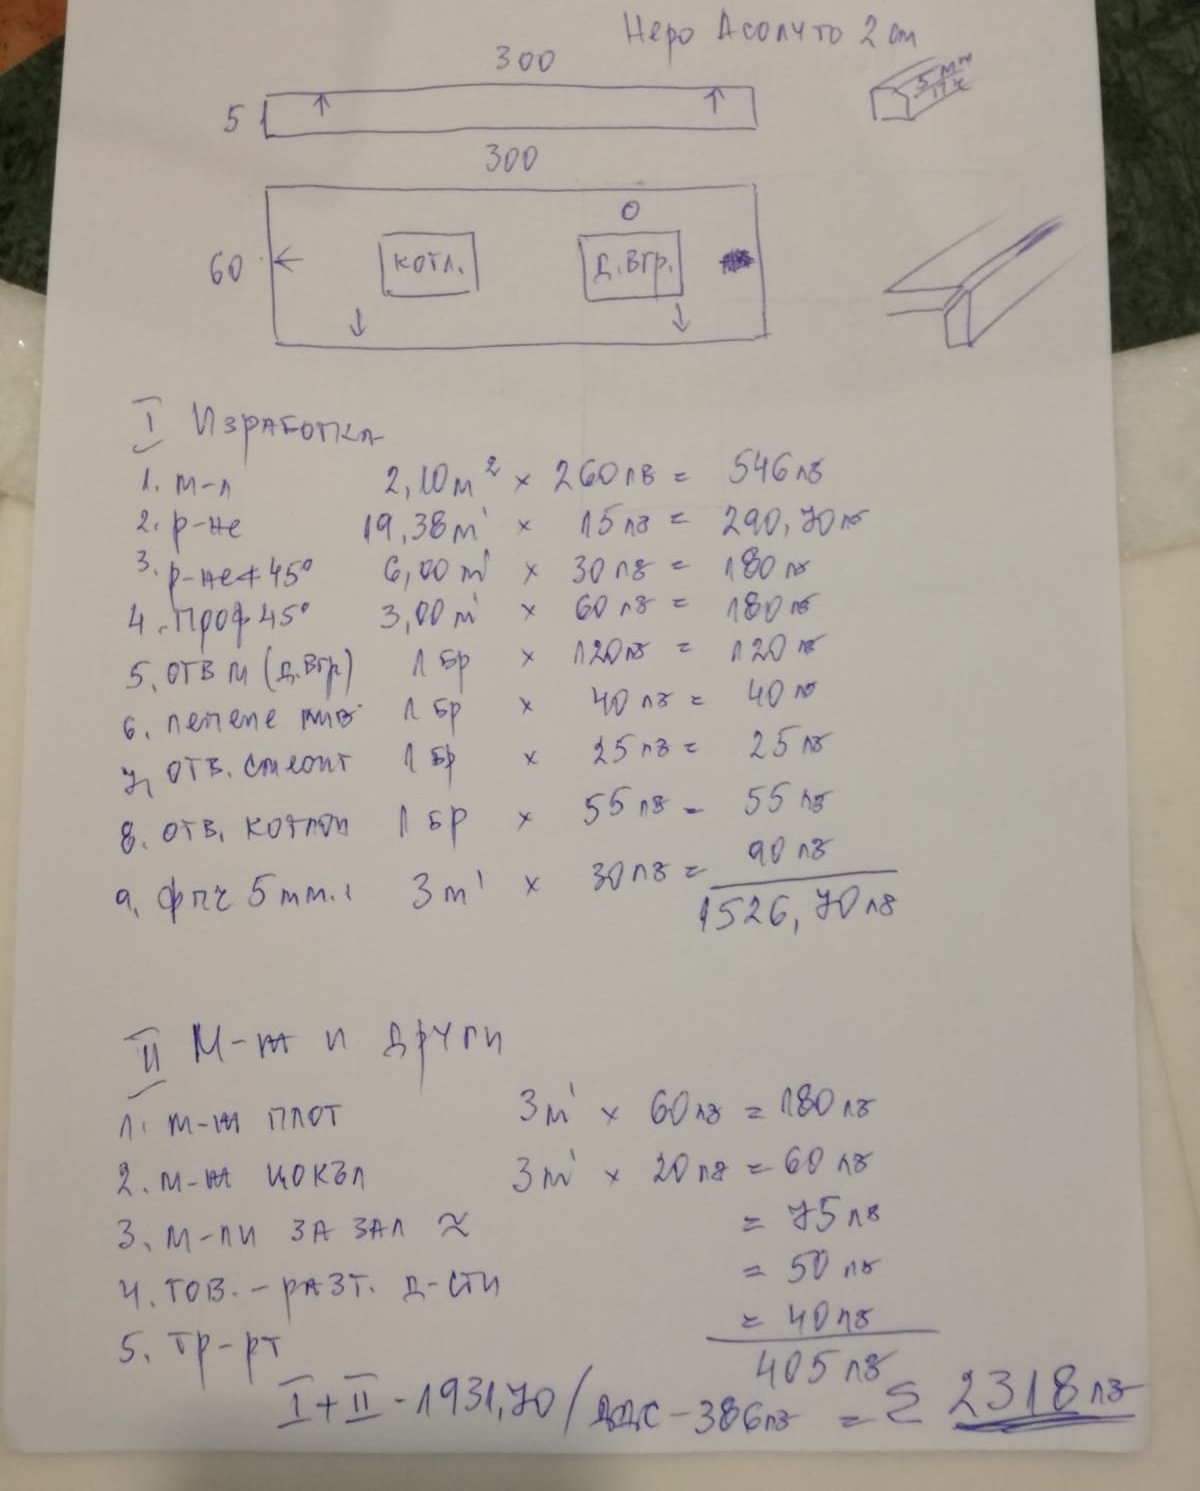 Неро Асолуто 2 см
300
5
5 мм
300
60
О
КОТЛ.
Д.ВГР.
I Изработка
1. м-л 2,10 м² × 260 лв = 546 лв
2. р-не 19,38 м' × 15 лв = 290,70 лв
3. р-не + 45° 6,00 м' × 30 лв = 180 лв
4. Проф 45° 3,00 м' × 60 лв = 180 лв
5. ОТВ М (Д.ВГР) 1 БР × 120 лв = 120 лв
6. лепене 1 БР × 40 лв = 40 лв
7. ОТВ. смесит 1 БР × 25 лв = 25 лв
8. ОТВ. КОТЛОН 1 БР × 55 лв = 55 лв
9. 5 мм. 3 м' × 30 лв = 90 лв
1526,70 лв
II М-Ж и други
1. м-ж ПЛОТ 3 м' × 60 лв = 180 лв
2. м-ж ЦОКЪЛ 3 м' × 20 лв = 60 лв
3. м-ли ЗА ЗАЛ ≈ = 75 лв
4. ТОВ. - РАЗТ. Д-СТИ = 50 лв
5. ТР-РТ = 40 лв
405 лв
I + II - 1931,70 / ДДС - 386 лв = Σ 2318 лв